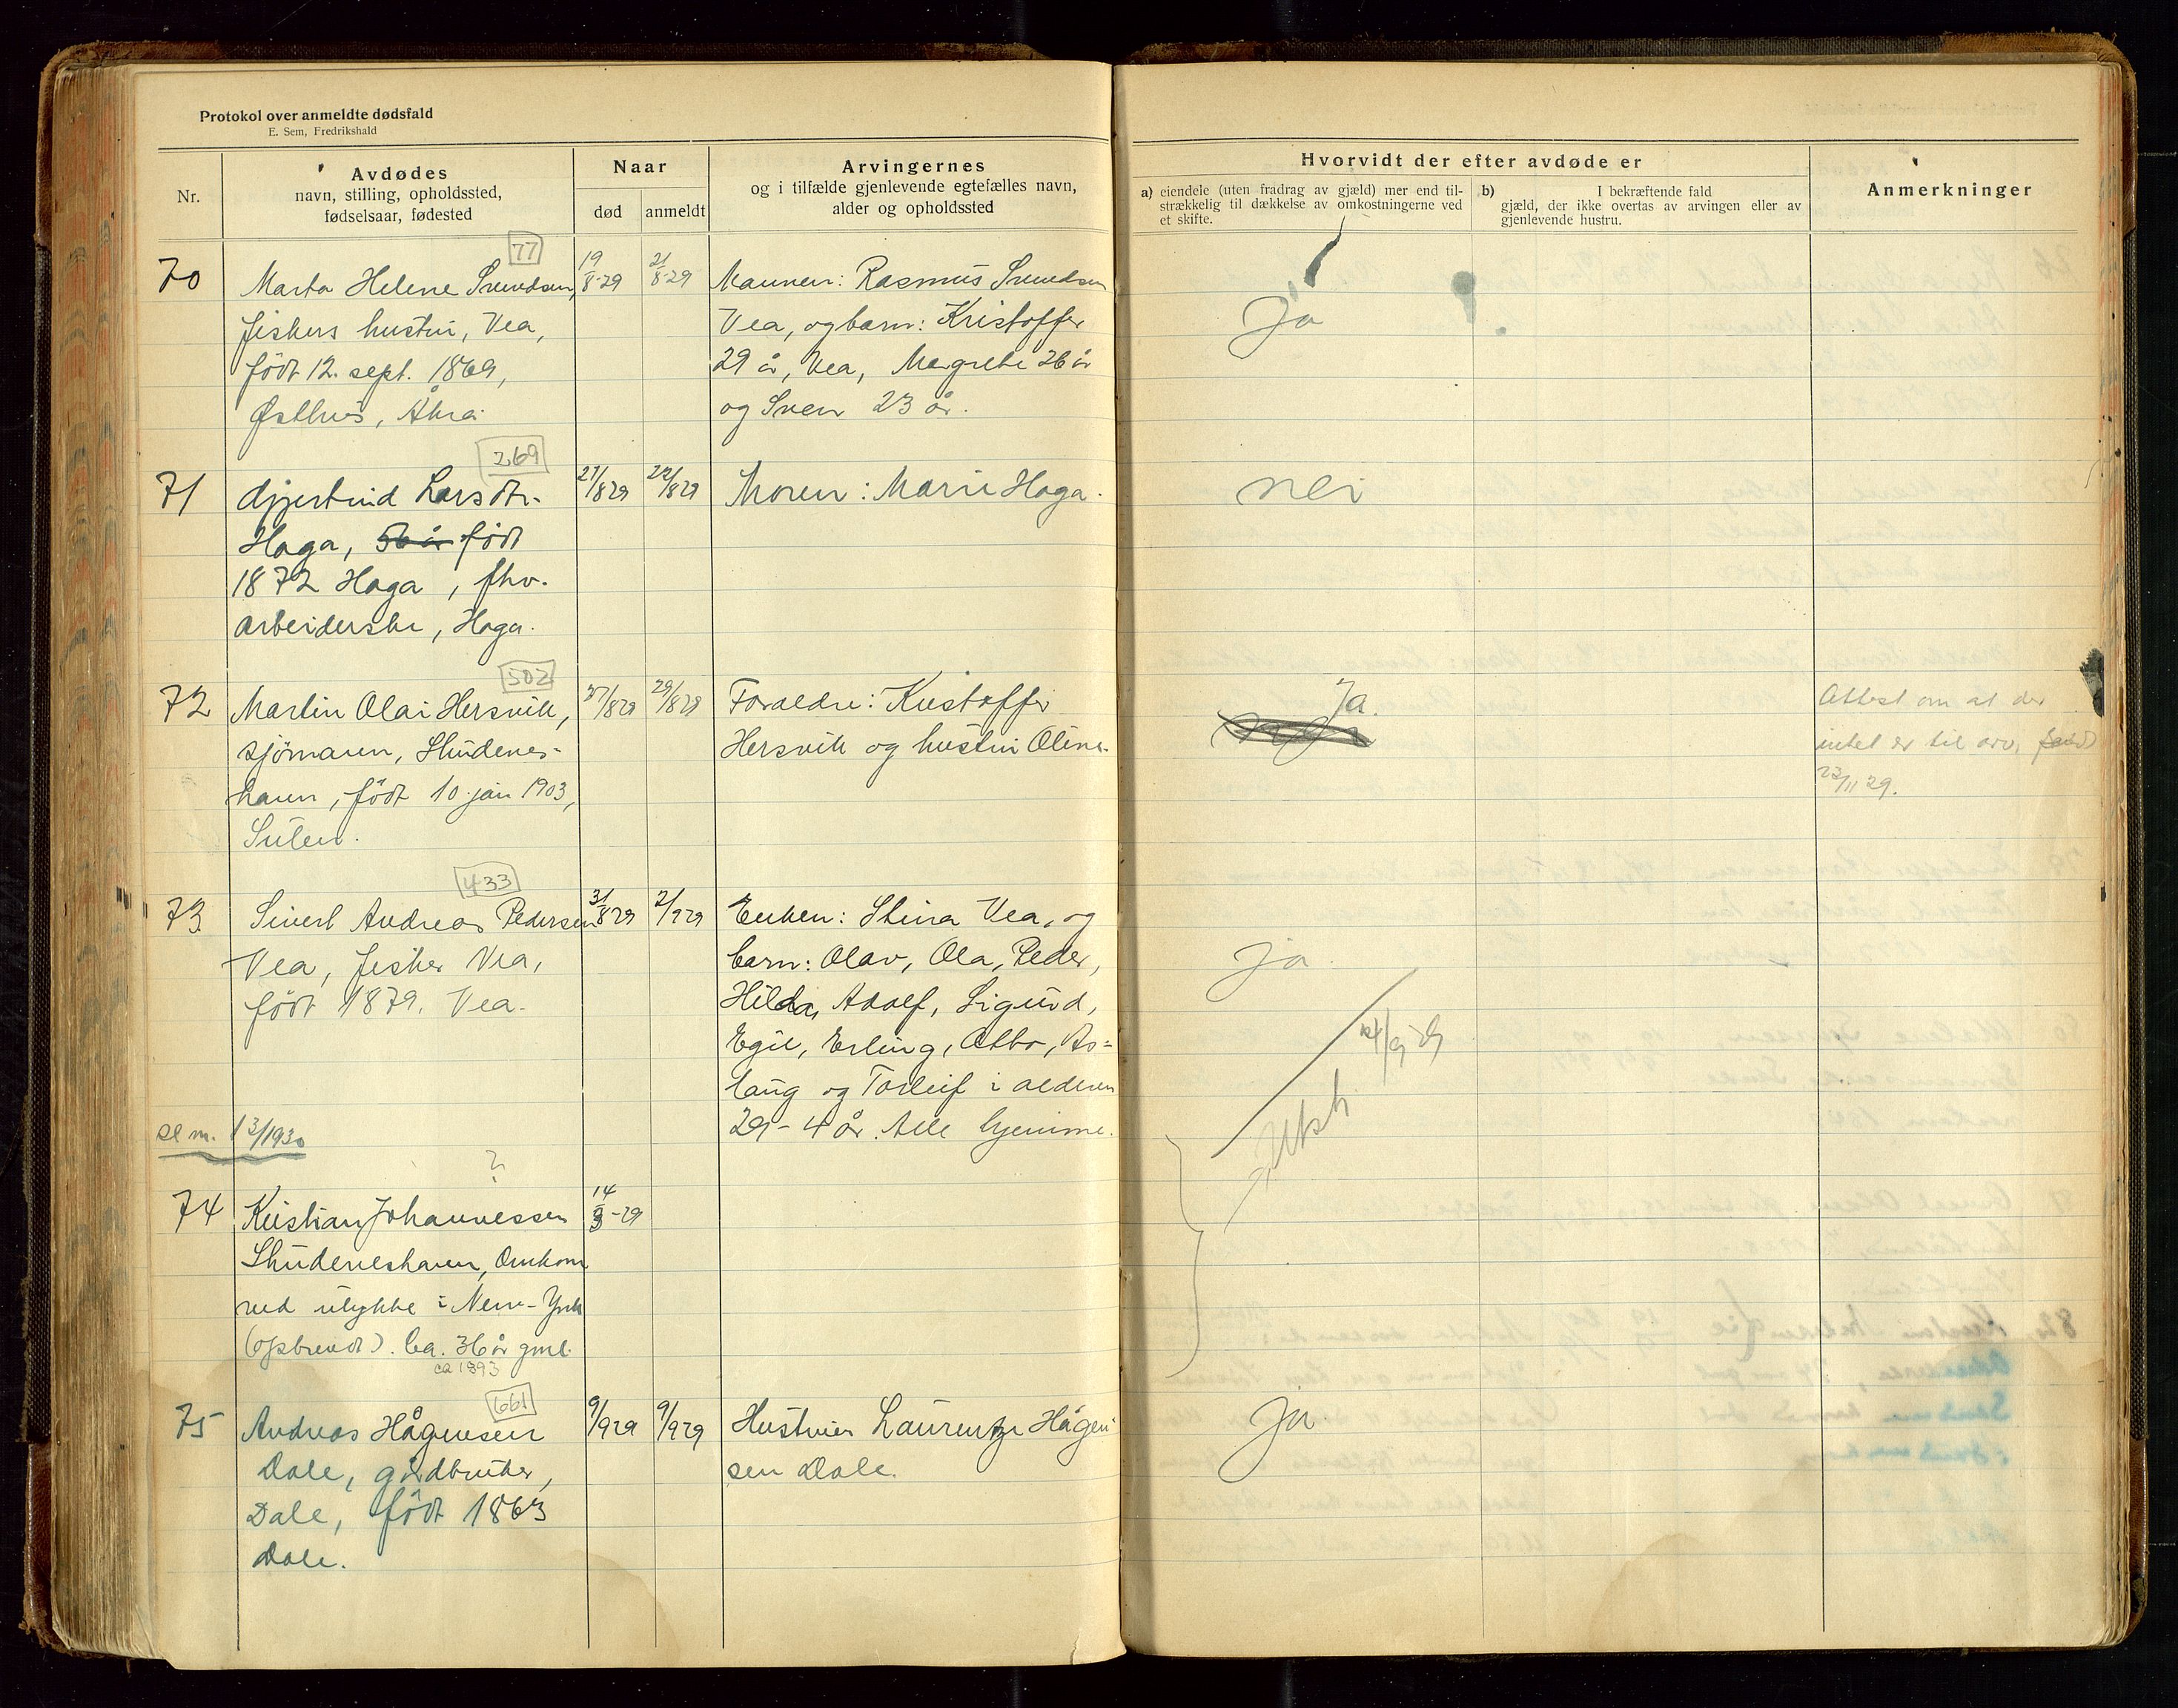 Protokol over anmeldte dødsfald
E. Sem, Fredrikshald
Nr.
Avdødes
navn, stilling, opholdssted,
fødselsaar, fødested
Naar
død
anmeldt
Arvingernes
og i tilfælde gjenlevende egtefælles navn,
alder og opholdssted
Hvorvidt der efter avdøde er
a) eiendele (uten fradrag av gjæld) mer end til-
strækkelig til dækkelse av omkostningerne ved
et skifte.
b) I bekræftende fald
gjæld, der ikke overtas av arvingen eller av
gjenlevende hustru.
Anmerkninger
77
70
Marta Helene Svendsen,
fiskers hustru, Vea,
født 12. sept. 1869,
Østhus, Åkra.
19/8-29
21/8-29
Mannen: Rasmus Svendsen
Vea, og barn: Kristoffer
29 år, Vea, Margrete 26 år
og Sven 23 år.
Ja
269
71
Gjertrud Larsdtr.
Haga, 56 år født
1872 Haga, fhv.
arbeiderske, Haga.
21/8 29
22/8 29
Moren: Marie Haga.
nei
502
72
Martin Olai Hersvik,
sjømann, Skudenes-
havn, født 10 jan 1903,
27/8 29
29/8 29
Foreldre: Kristoffer
Hersvik og hustru Oline.
Ja.
Attest om at der
intet er til arv, sendt
23/11 29.
433
73
Sivert Andreas Pedersen
Vea, fisker Vea,
født 1879. Vea.
31/8 29
2/9 29
Enken: Stina Vea, og
barn: Olav, Ola, Peder,
Hilda, Adolf, Sigurd,
Egil, Erling, Otto, As=
laug og Torleif i alderen
29 - 4 år. Alle hjemme.
ja.
/9 29
1 3/1930
?
74
Kristian Johannessen
Skudeneshavn, Omkom
ved ulykke i New-York
(opbrendt). Ca. 36 år gml.
ca 1893
14/3-29
661
75
Andreas Hågensen
Dale, gårdbruker,
Dale, født 1863
Dale.
9/9 29
9/9 29
Hustruen Laurentze Hågen
sen Dale.
Ja.